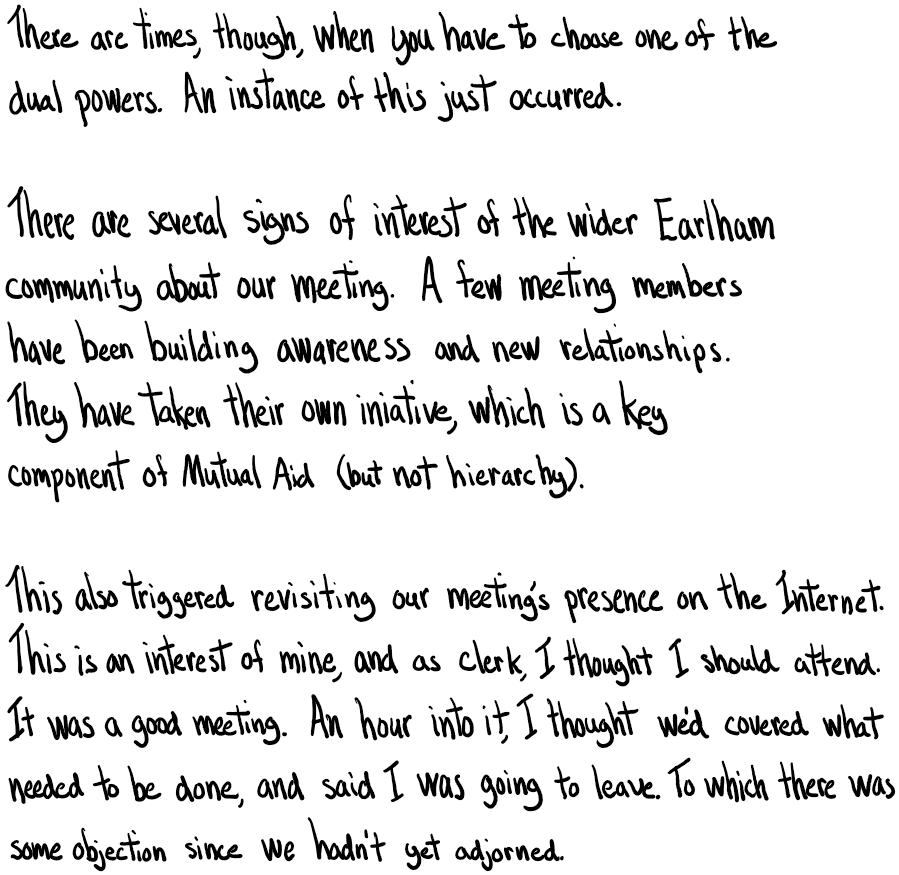 There are times, though, when you have to choose one of the
dual powers. An instance of this just occurred.
There are several signs of interest of the wider Earlham
community about our meeting. A few meeting members
have been building awareness and new relationships.
They have taken their own iniative, which is a key
component of Mutual Aid (but not hierarchy).
This also triggered revisiting our meeting's presence on the Internet.
This is an interest of mine, and as clerk, I thought I should attend.
It was a good meeting. An hour into it, I thought we'd covered what
needed to be done, and said I was going to leave. To which there was
some objection since we hadn't yet adjorned.